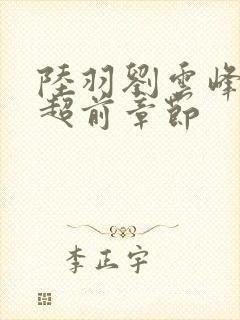 陸羽劉雲峰
超前章節
李正宇